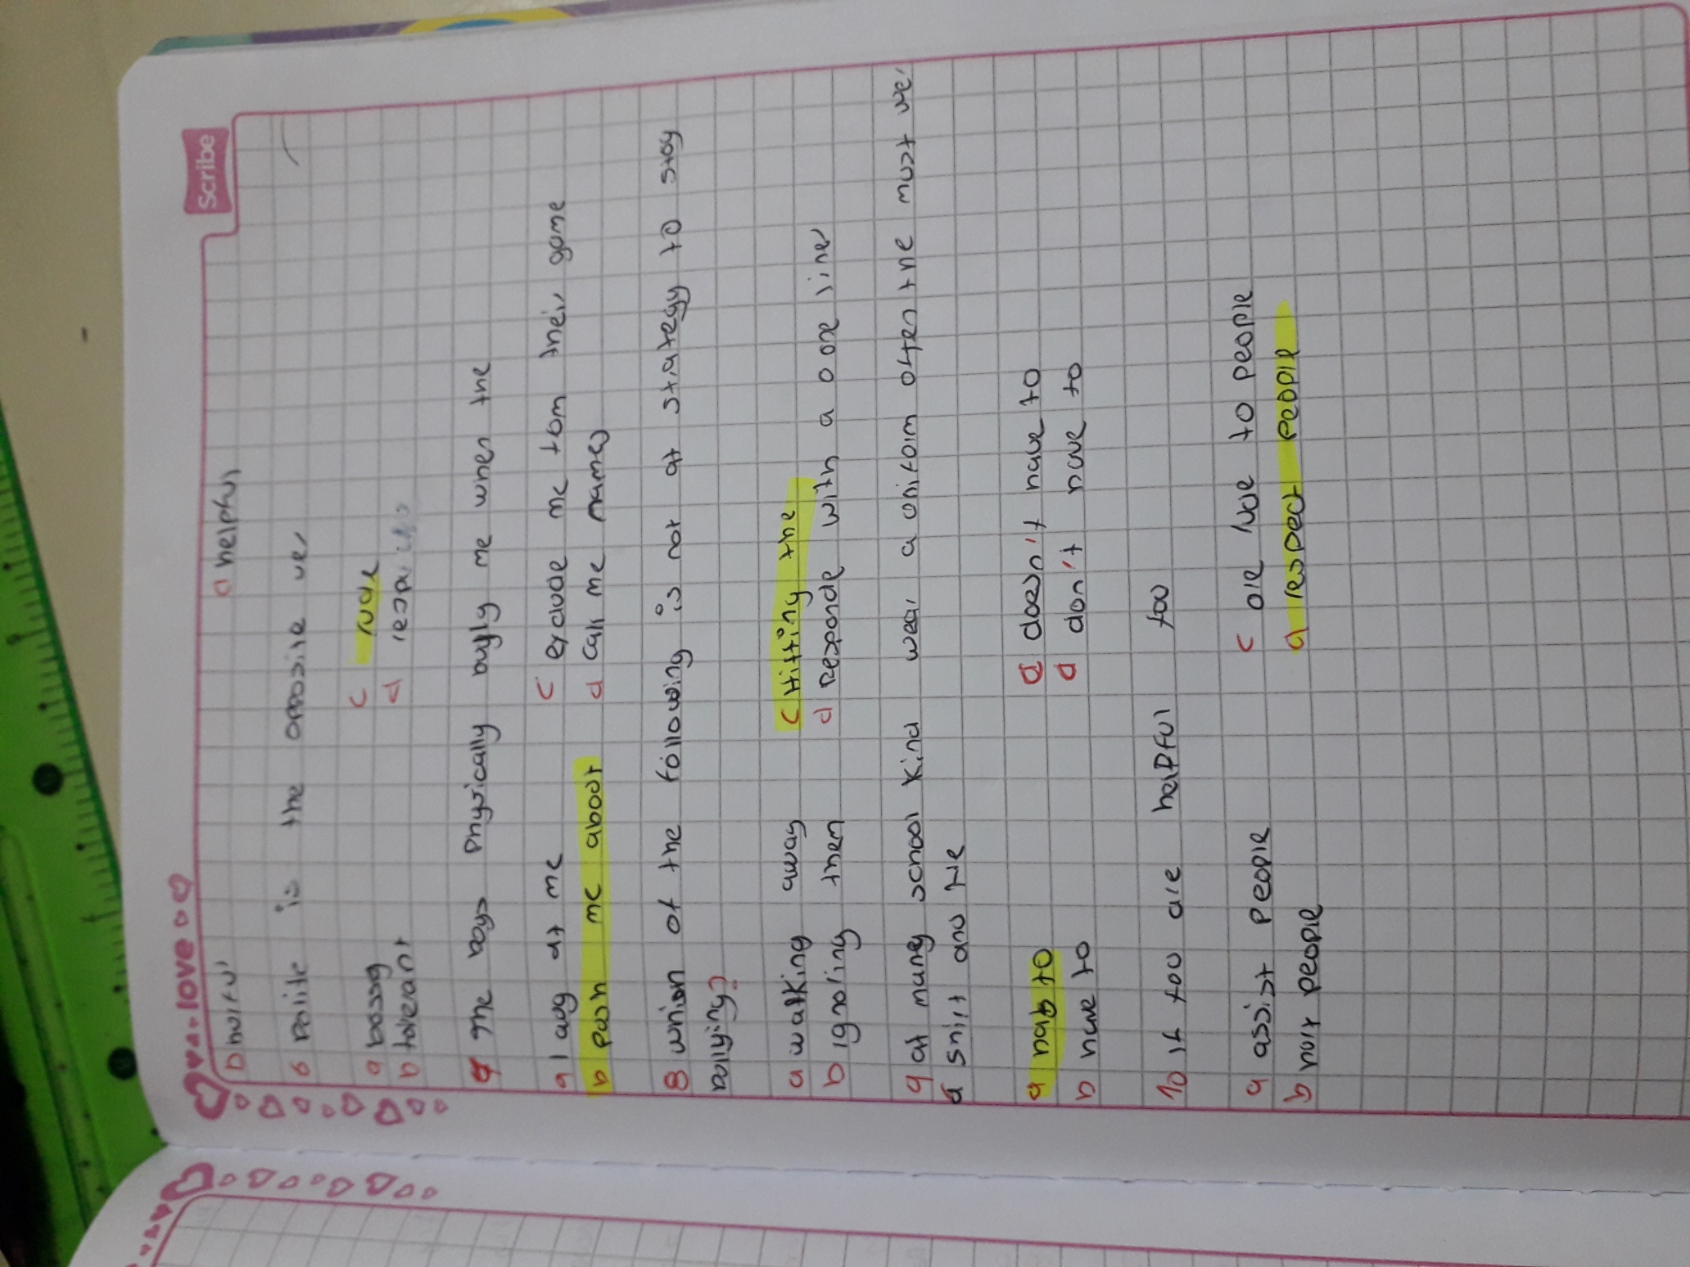 love
Scribe
b hurtful
d helpful
6 Polite is the opposite ver
a bossy
c rude
b tolerant
d
7 The boys Physically bylly me when the
a laug at me
c exclude me fom their game
b push me about
d call me names
8 which of the following is not at strategy to stay
bullying?
a walking away
c Hitting the
b ignoling then
d Responde with a one liner
9 at many school kind wear a uniform often the must wer
a shirt and
a
d doesn't have to
b have to
d don't have to
10 if too are helpful too
a assist people
c are to people
b hurt people
d respect people